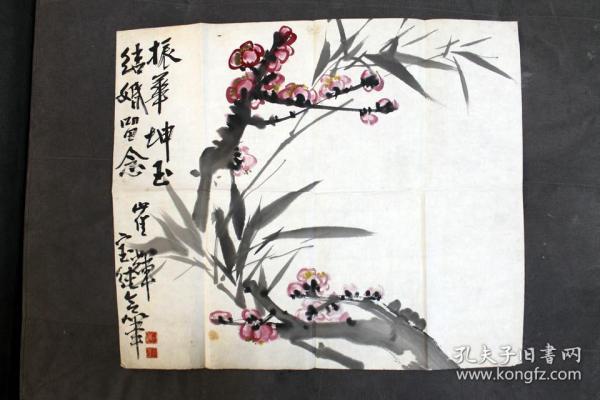 振华坤玉
结婚留念
崔辉
宝健合笔
孔夫子旧书网
www.kongfz.com